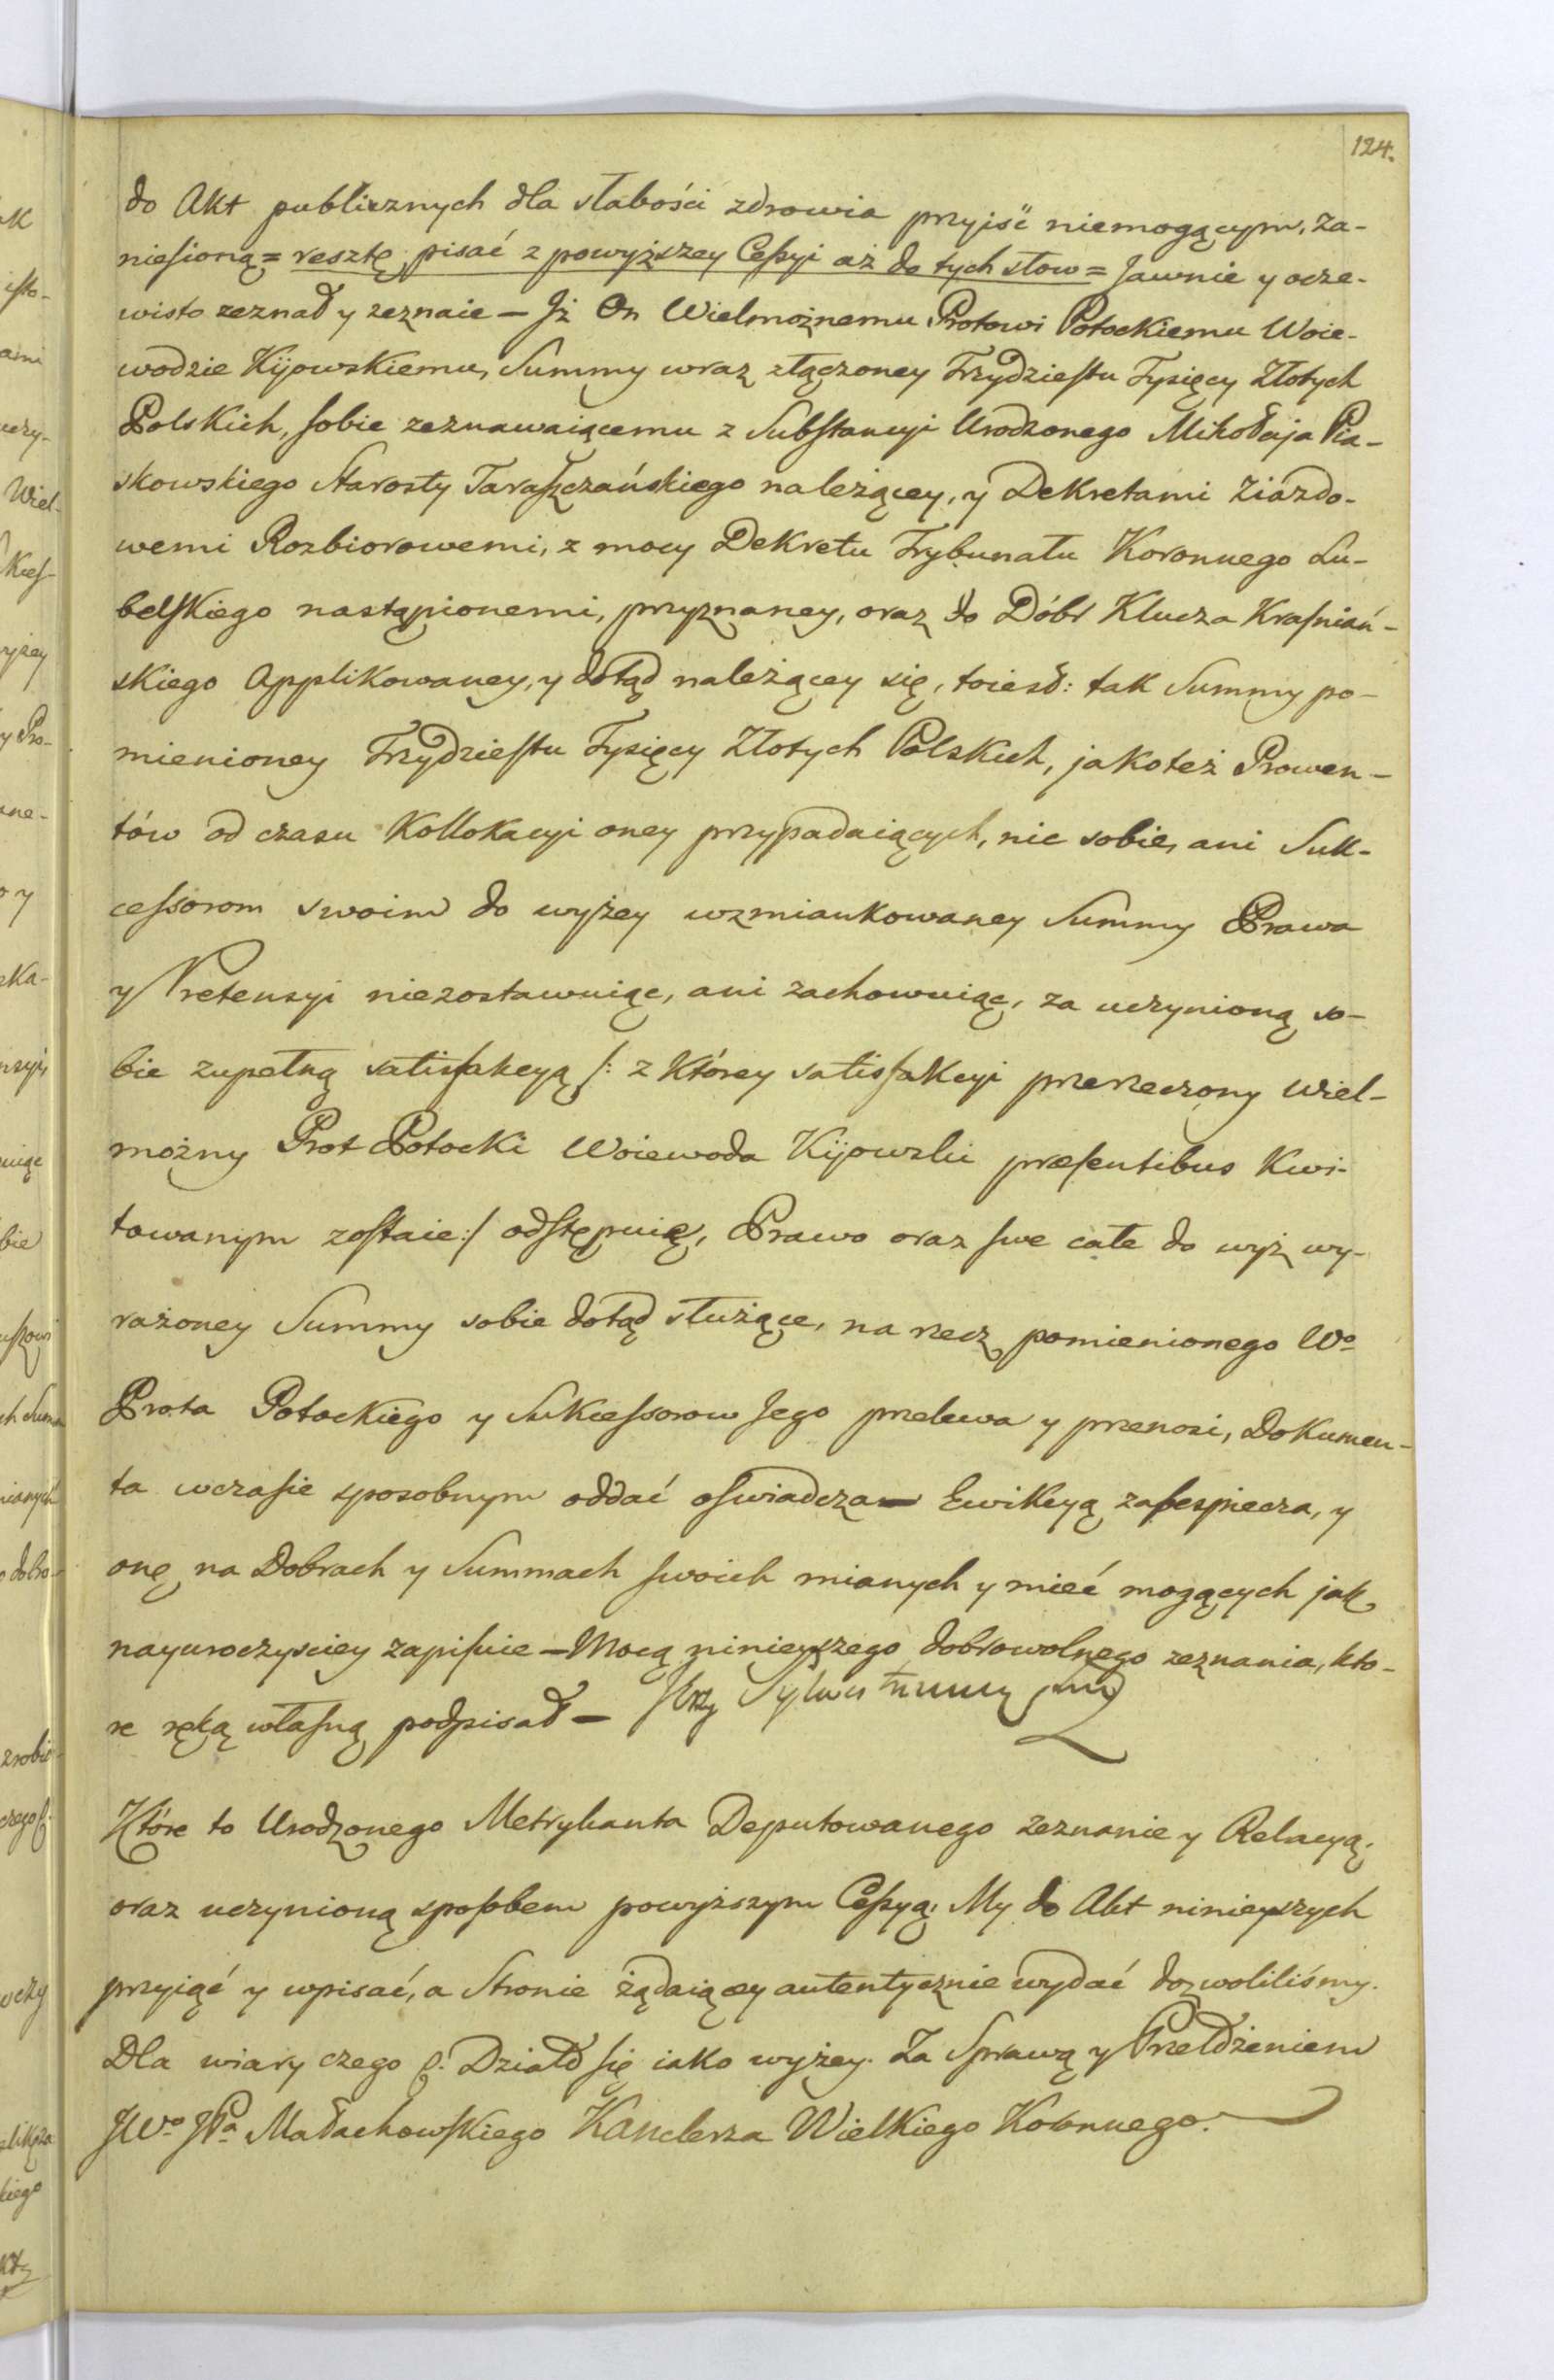 124.
do Akt publicznych dla słabości zdrowia przyjść niemogącym, za-
niesioną = resztę pisać z powyższey Cessyi aż do tych słow = Jawnie y ocze-
wisto zeznał y zeznaie — Iż On Wielmożnemu Protowi Potockiemu Woie-
wodzie Kijowskiemu, Summy wraz złączoney Trzydziestu Tysięcy Złotych
Polskich, sobie zeznawaiącemu z Substancyi Urodzonego Mikołaja Pia-
skowskiego Starosty Taraszczańskiego należącey, y Dekretami Ziazdo-
wemi Rozbiorowemi, z mocy Dekretu Trybunału Koronnego Lu-
belskiego nastąpionemi, przyznaney, oraz do Dóbr Klucza Krasniań-
skiego Applikowaney, y dotąd należącey się, toiest: tak Summy po-
mienioney Trzydziestu Tysięcy Złotych Polskich, jakoteż Prowen-
tów od czasu Kollokacyi oney przypadaiących, nic sobie, ani Suk-
cessorom swoim do wyżey wzmiankowaney Summy Prawa
y Pretensyi niezostawuiąc, ani zachowuiąc, za uczynioną so-
bie zupełną satisfakcyą /: z którey satisfakcyi przerzeczony Wiel-
możny Prot Potocki Woiewoda Kijowski præsentibus kwi-
towanym zostaie :/ odstępuię, Prawo oraz swe całe do wyż wy-
rażoney Summy sobie dotąd służące, na rzecz pomienionego Wo
Prota Potockiego y Sukcessorow Jego przelewa y przenosi, Dokumen-
ta wczasie sposobnym oddać oswiadcza — Ewikcyą zabespiecza, y
onę na Dobrach y Summach swoich mianych y mieć mogących jak
nayuroczysciey zapisuie — Mocą ninieyszego dobrowolnego zeznania, kto-
re ręką własną podpisał —
Które to Urodzonego Metrykanta Deputowanego zeznanie y Relacyą,
oraz uczynioną sposobem powyższym Cessyą, My do Akt ninieyszych
przyiąć y wpisać, a Stronie żądaiącey autentycznie wydać dozwoliliśmy.
Dla wiary czego &. Działo się iako wyżey. Za Sprawą y Przełożeniem
JWo JPa Małachowskiego Kanclerza Wielkiego Koronnego.